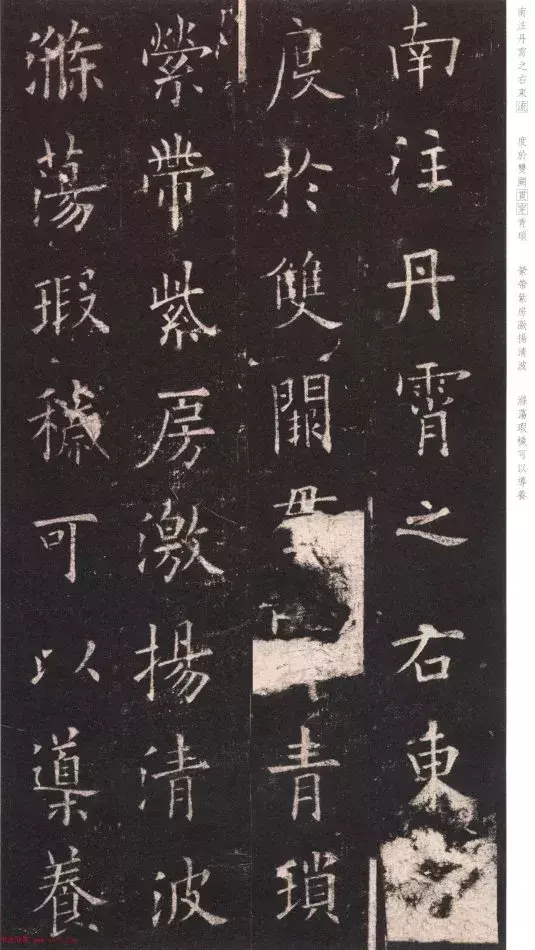 南注丹霄之右東
度於雙闕貫青瑣
縈帶紫房激揚清波
滌蕩瑕穢可以導養
南注丹霄之右東流 度於雙闕貫空青瑣 縈帶紫房激揚清波 滌蕩瑕穢可以導養